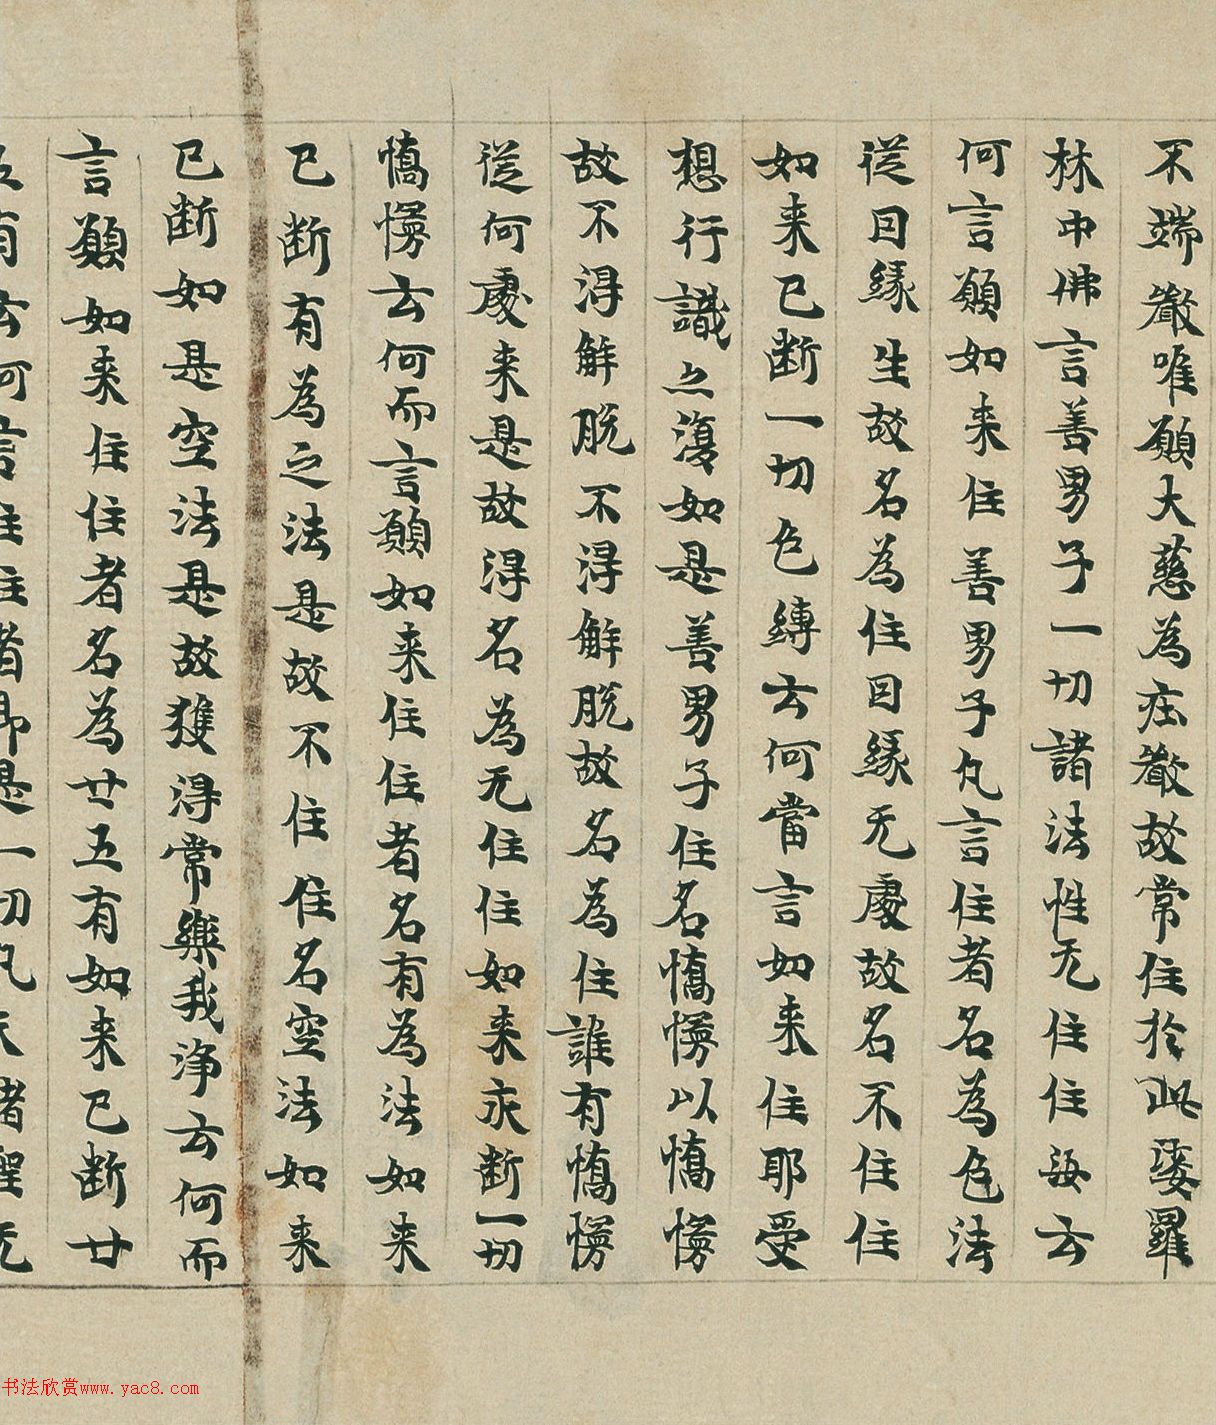 不端嚴唯願大慈為庄嚴故常住於此娑羅
林中佛言善男子一切諸法性无住住汝云
何言願如来住善男子凡言住者名為色法
從因緣生故名為住因緣无處故名不住住
如来已断一切色縛云何當言如来住耶受
想行識亦復如是善男子住名憍慢以憍慢
故不得解脱不得解脱故名為住誰有憍慢
從何處来是故得名為无住住如来永断一切
憍慢云何而言願如来住住者名有為法如来
已断有為之法是故不住住名空法如来
已断如是空法是故獲得常樂我淨云何而
言願如来住住者名為廿五有如来已断廿
五有云何言住住者即是一切凡夫諸聖无
书法欣赏www.yac8.com